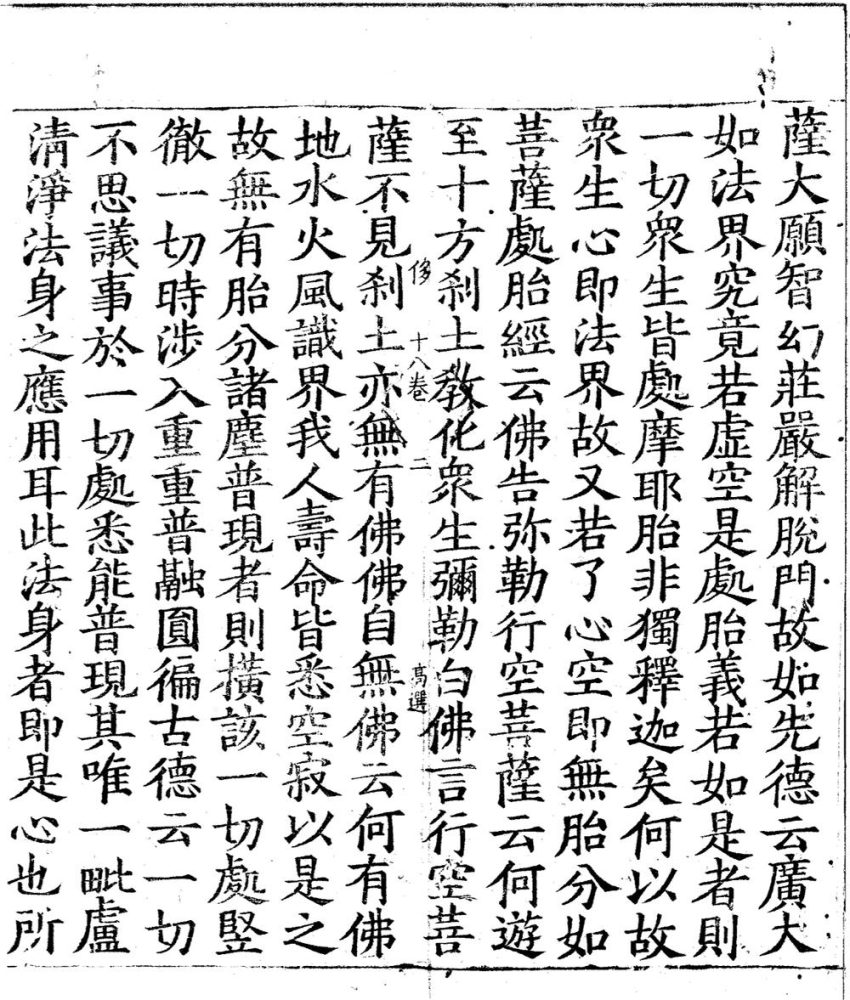 薩大願智幻莊嚴解脫門故如先德云廣大
如法界究竟若虛空是處胎義若如是者則
一切衆生皆處摩耶胎非獨釋迦矣何以故
衆生心即法界故又若了心空即無胎分如
菩薩處胎經云佛告弥勒行空菩薩云何遊
至十方刹土教化衆生彌勒白佛言行空菩
侈 十八卷 二 髙選
薩不見刹土亦無有佛佛自無佛云何有佛
地水火風識界我人壽命皆悉空寂以是之
故無有胎分諸塵普現者則橫該一切處竪
徹一切時涉入重重普融圓徧古德云一切
不思議事於一切處悉能普現其唯一毗盧
淸淨法身之應用耳此法身者即是心也所